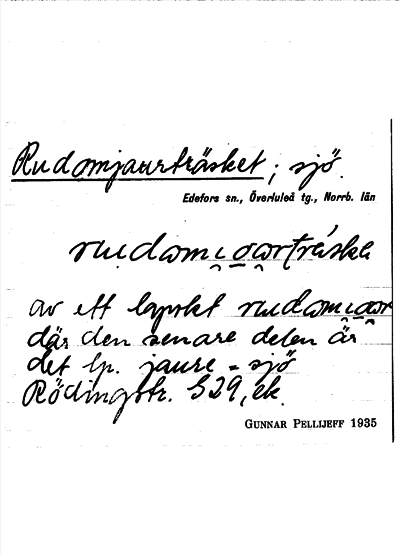 Rudomjaurträsket; sjö.
Edefors sn., Överluleå tg., Norrb. län
rudomi̯o̱ar̯träska
av ett lapskt rudomi̯o̱ar̯
där den senare delen är
det lp. jaure = sjö
Rödingstr. S29, ek.
GUNNAR PELLIJEFF 1935